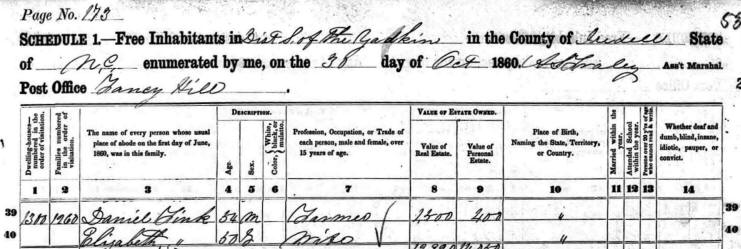 Page No. 173
53
SCHEDULE 1.—Free Inhabitants in Dist S. of The Yadkin in the County of Iredell State
of N.C. enumerated by me, on the 30 day of Oct 1860. Ass't Marshal.
Post Office Fancy Hill
DESCRIPTION. VALUE OF ESTATE OWNED.
Dwelling-houses— numbered in the order of visitation.
Families numbered in the order of visitation.
The name of every person whose usual place of abode on the first day of June, 1860, was in this family.
Age.
Sex.
Color, White, black, or mulatto.
Profession, Occupation, or Trade of each person, male and female, over 15 years of age.
Value of Real Estate.
Value of Personal Estate.
Place of Birth, Naming the State, Territory, or Country.
Married within the year.
Attended School within the year.
Persons over 20 y'rs of age who cannot read & write.
Whether deaf and dumb, blind, insane, idiotic, pauper, or convict.
1 2 3 4 5 6 7 8 9 10 11 12 13 14
39 1300 1260 Daniel Fink 54 m Farmer 1,500 200 " 39
40 Elizabeth " 50 f Wife " 40